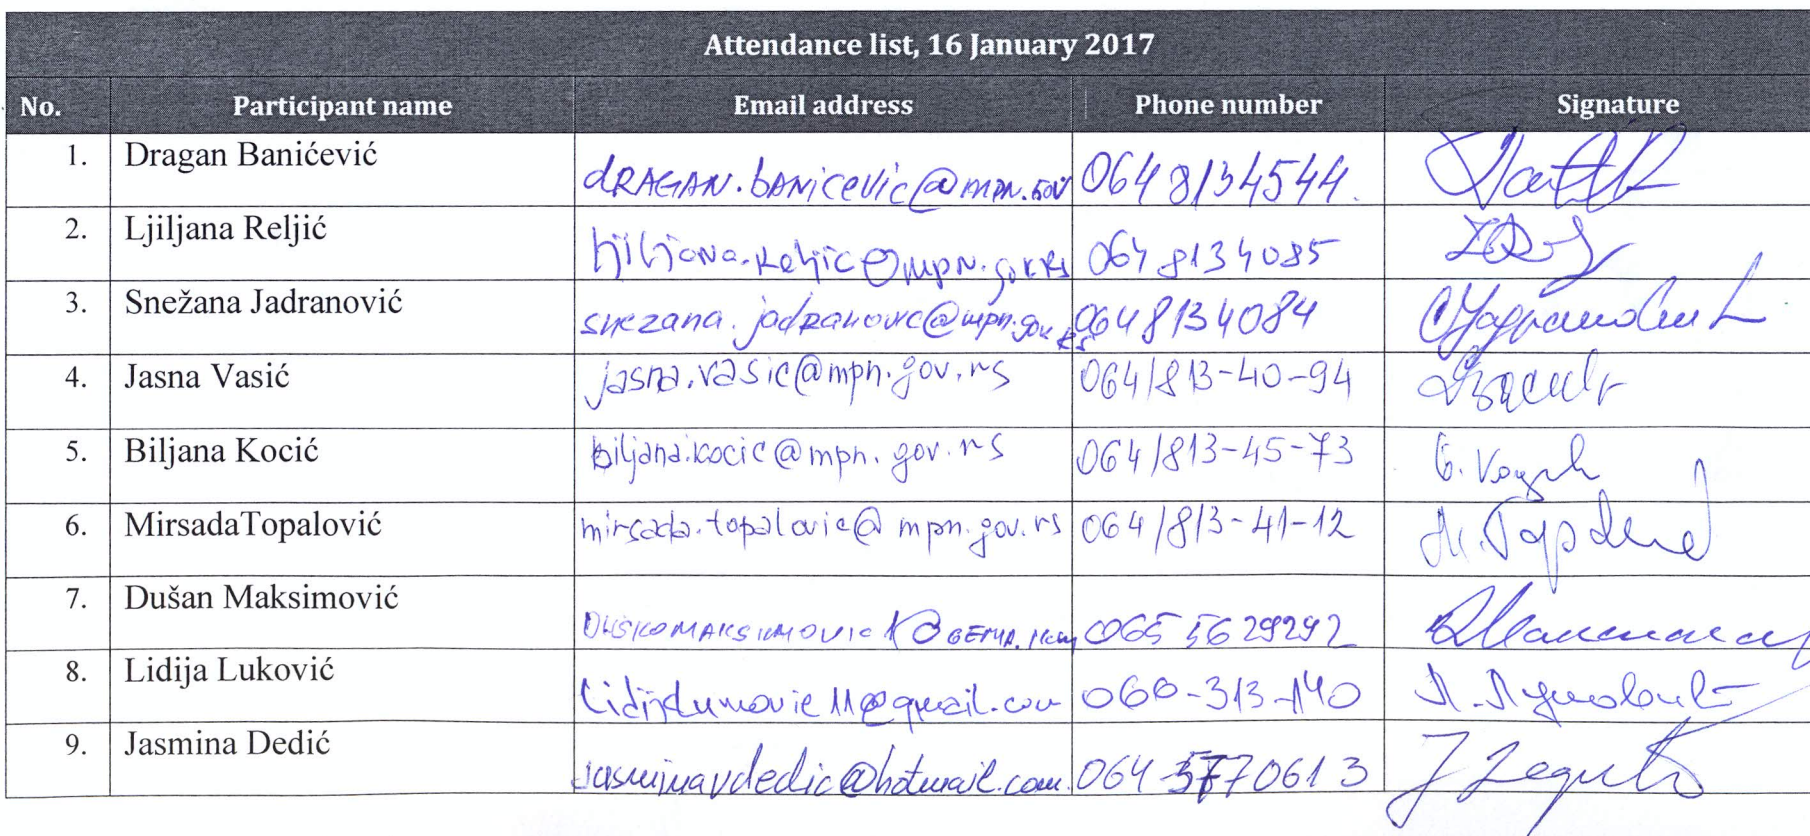 Attendance list, 16 January 2017
No. Participant name Email address Phone number Signature
1. Dragan Banićević dRAGAN.bANiceVic@mpn.gov 064 8134544.
2. Ljiljana Reljić ljiljana.reljic@mpn.gov.rs 064 8134085
3. Snežana Jadranović snezana.jadranovic@mpn.gov.rs 0648134084
4. Jasna Vasić jasna.vasic@mpn.gov.rs 064/813-40-94
5. Biljana Kocić biljana.kocic@mpn.gov.rs 064/813-45-73
6. MirsadaTopalović mirsada.topalovic@mpn.gov.rs 064/813-41-12
7. Dušan Maksimović 065 5629292
8. Lidija Luković 060-313-140
9. Jasmina Dedić jasminavdedic@hotmail.com 064 5770613